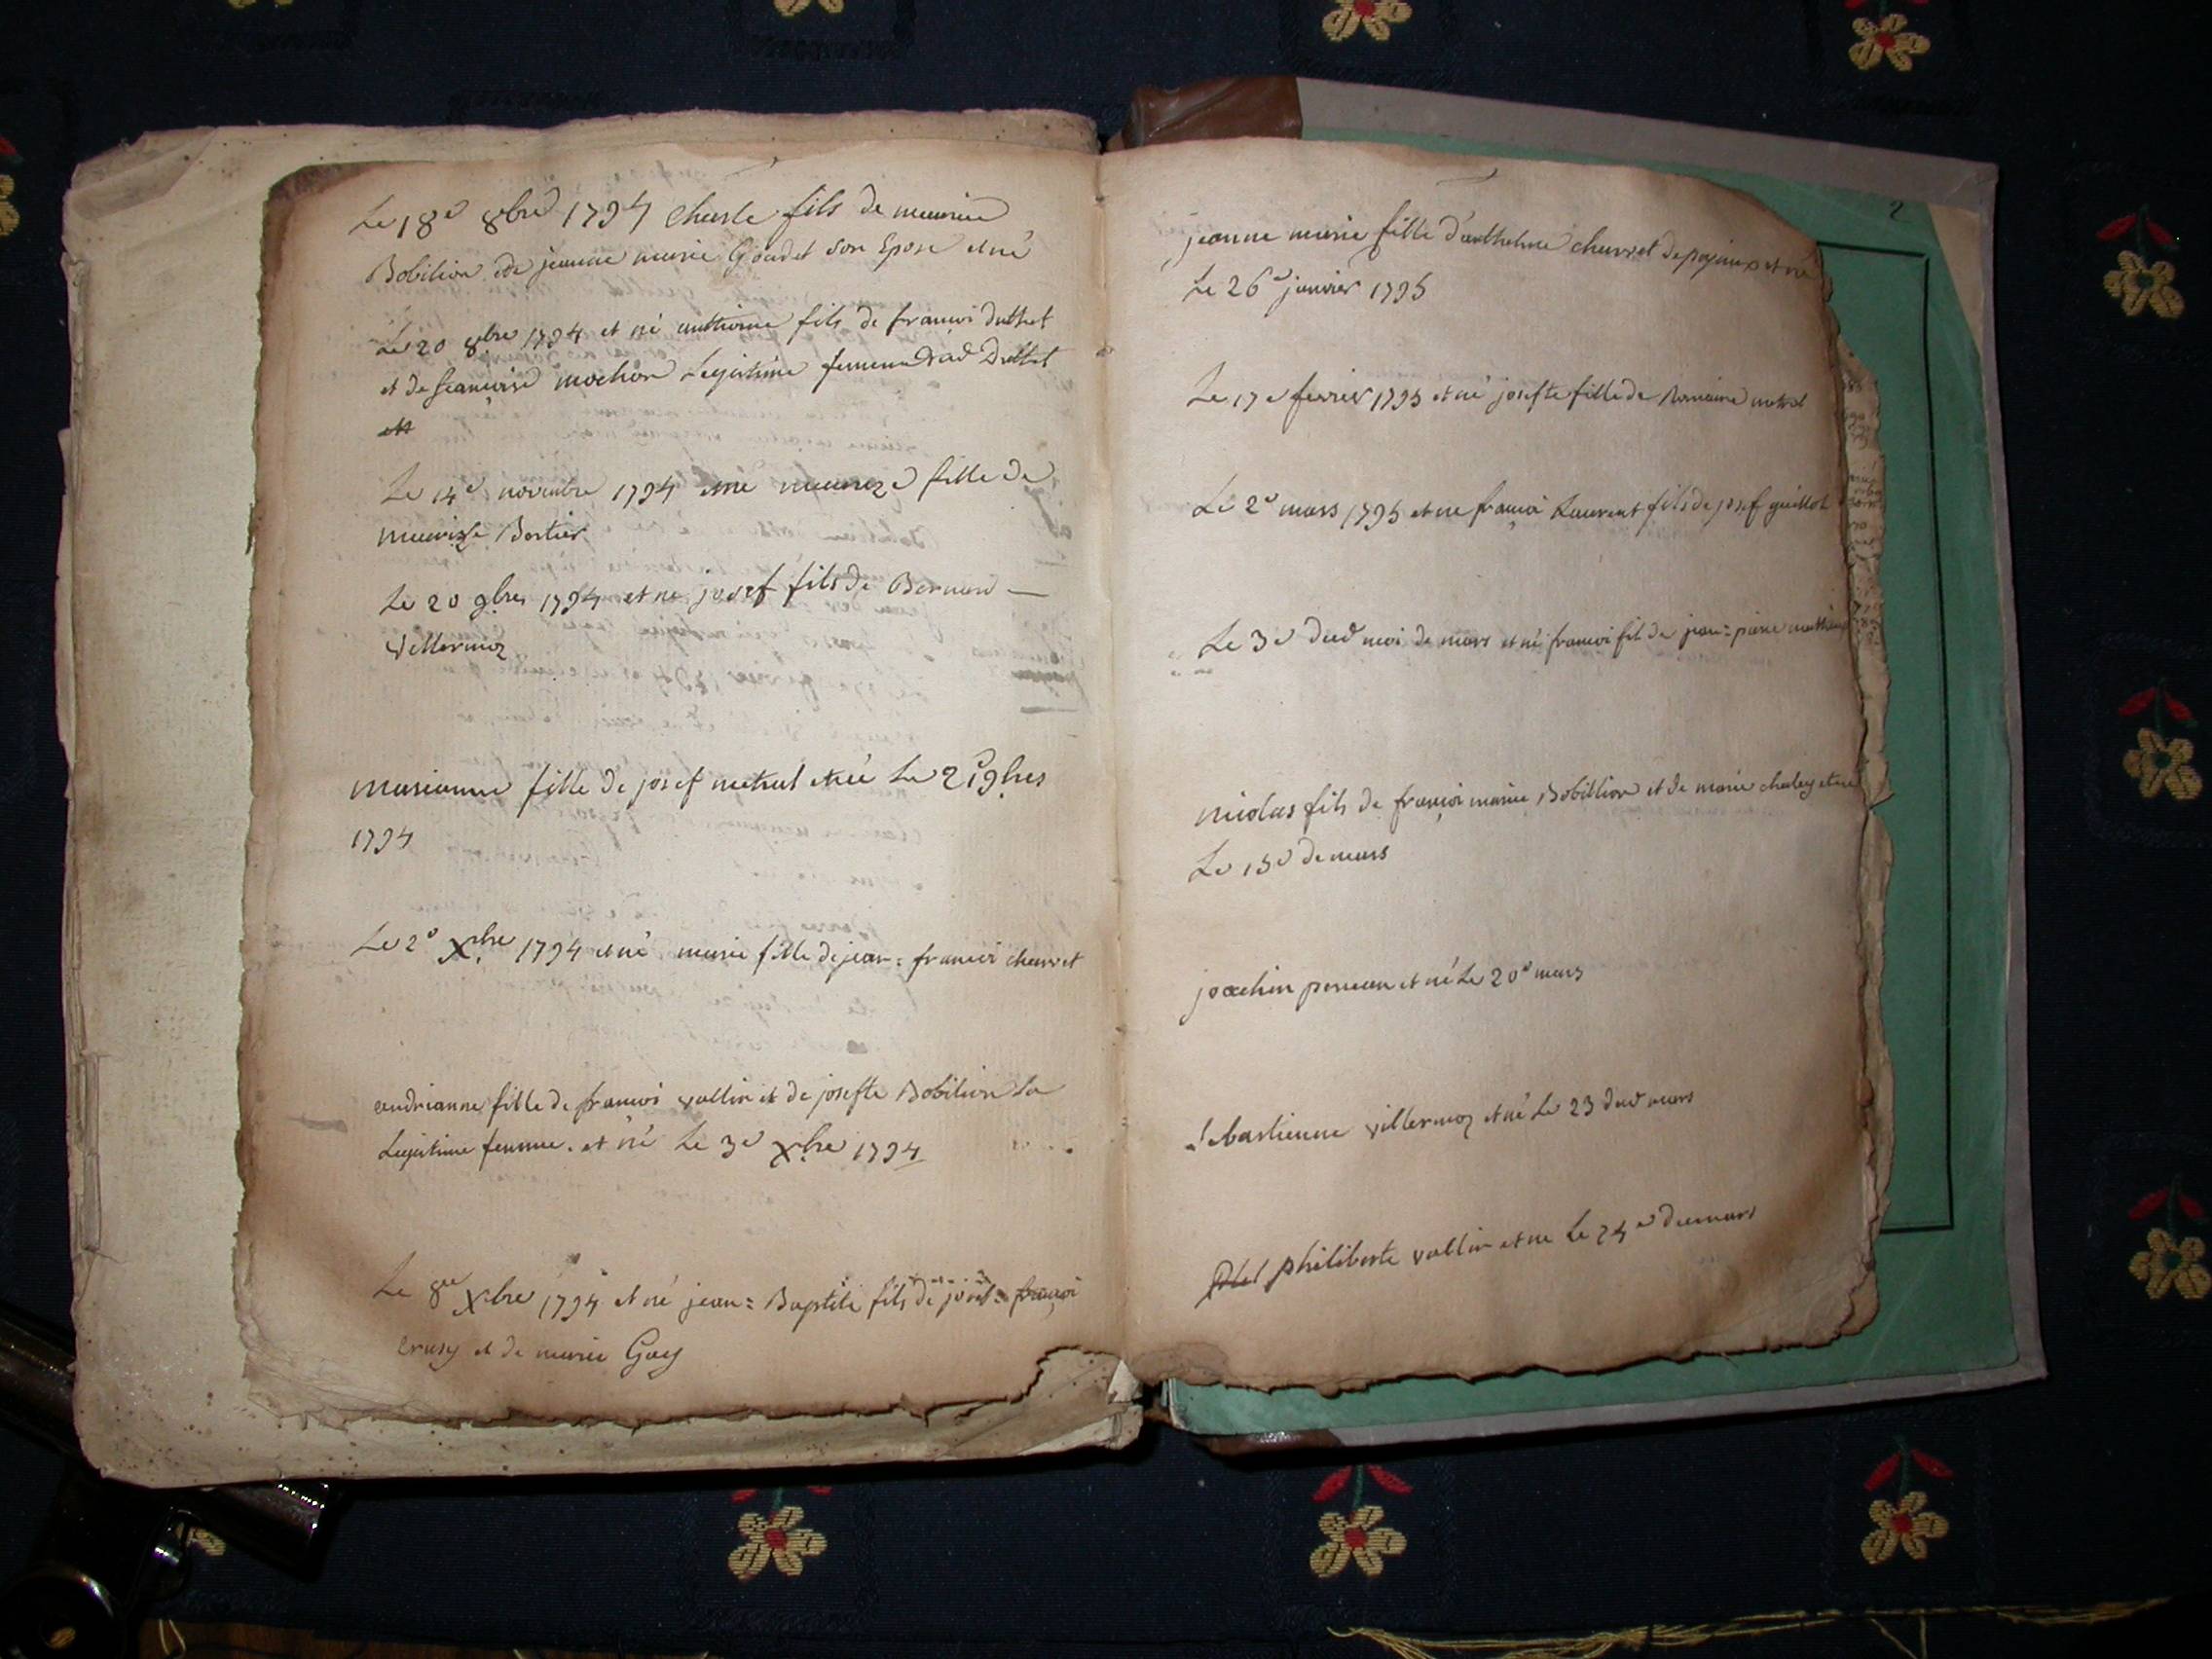 Le 18e 8bre 1794 charle fils de maurice
Bobilion et de jeanne marie Goudet son Epose et né
Le 20 8bre 1794 et né anthoine fils de françoi duthet
et de françoise mochon Legistime femme dud Duthet
Le 14e novembre 1794 et né fille de
maurize Bertier
Le 20 9bres 1794 et né josef fils de Bernard
Villermoz
marianne fille de josef metral et né Le 9bres
1794
Le 2e Xbre 1794 et né marie fille de jean = françoi charvet
andrianne fille de françoi vallin et de josefte Bobilion sa
Legistime femme. et né Le 3e Xbre 1794
Le 8me Xbre 1794 et né jean = Baptite fils de françoi
crusy et de marie Goy
2
jeanne marie fille d'anthelme charvet de et né
Le 26e janvier 1795
Le 17e fevrier 1795 et né josefte fille de Romaine metral
Le 2e mars 1795 et né françoi Laurent fils de josef guillot
Le 3e dud moi de mars et né françoi fils de jean = piere
nicolas fils de françoi marie Bobillion et de marie chaley et né
Le 15e de mars
joachin et né Le 20e mars
sebastienne villermoz et né Le 23 dud mars
philiberte vallin et né Le 24e du mars